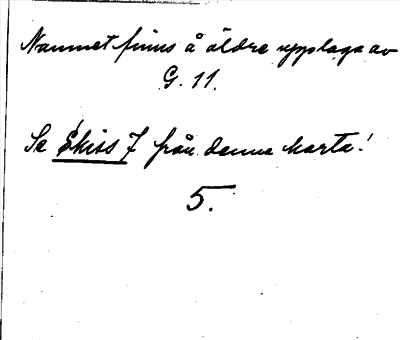 Namnet finns å äldre upplaga av
G. 11.
Se Skiss 7 från denna karta!
5.